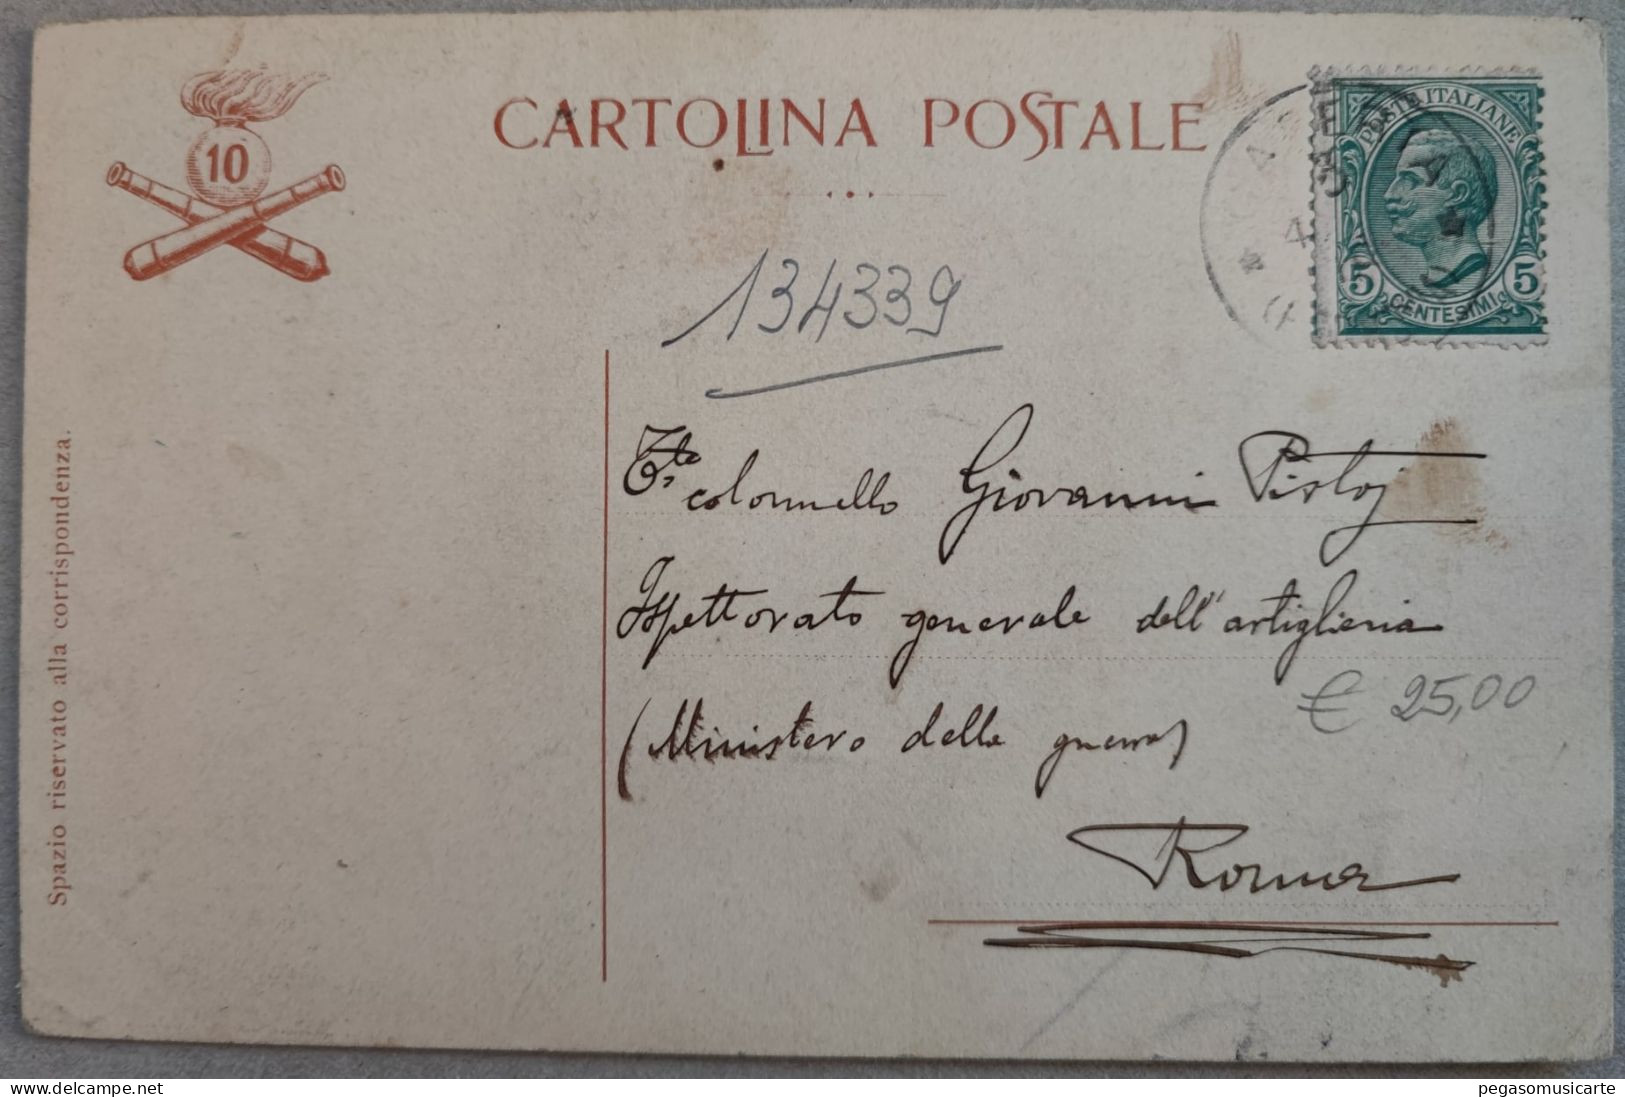 10
CARTOLINA POSTALE
POSTE ITALIANE
5 5
CENTESIMI
134339
Spazio riservato alla corrispondenza.
T.te colonnello Giovanni Pistoj
Ispettorato generale dell'artiglieria
€ 25,00
(Ministero della guerra)
Roma
delcampe.net
pegasomusicarte